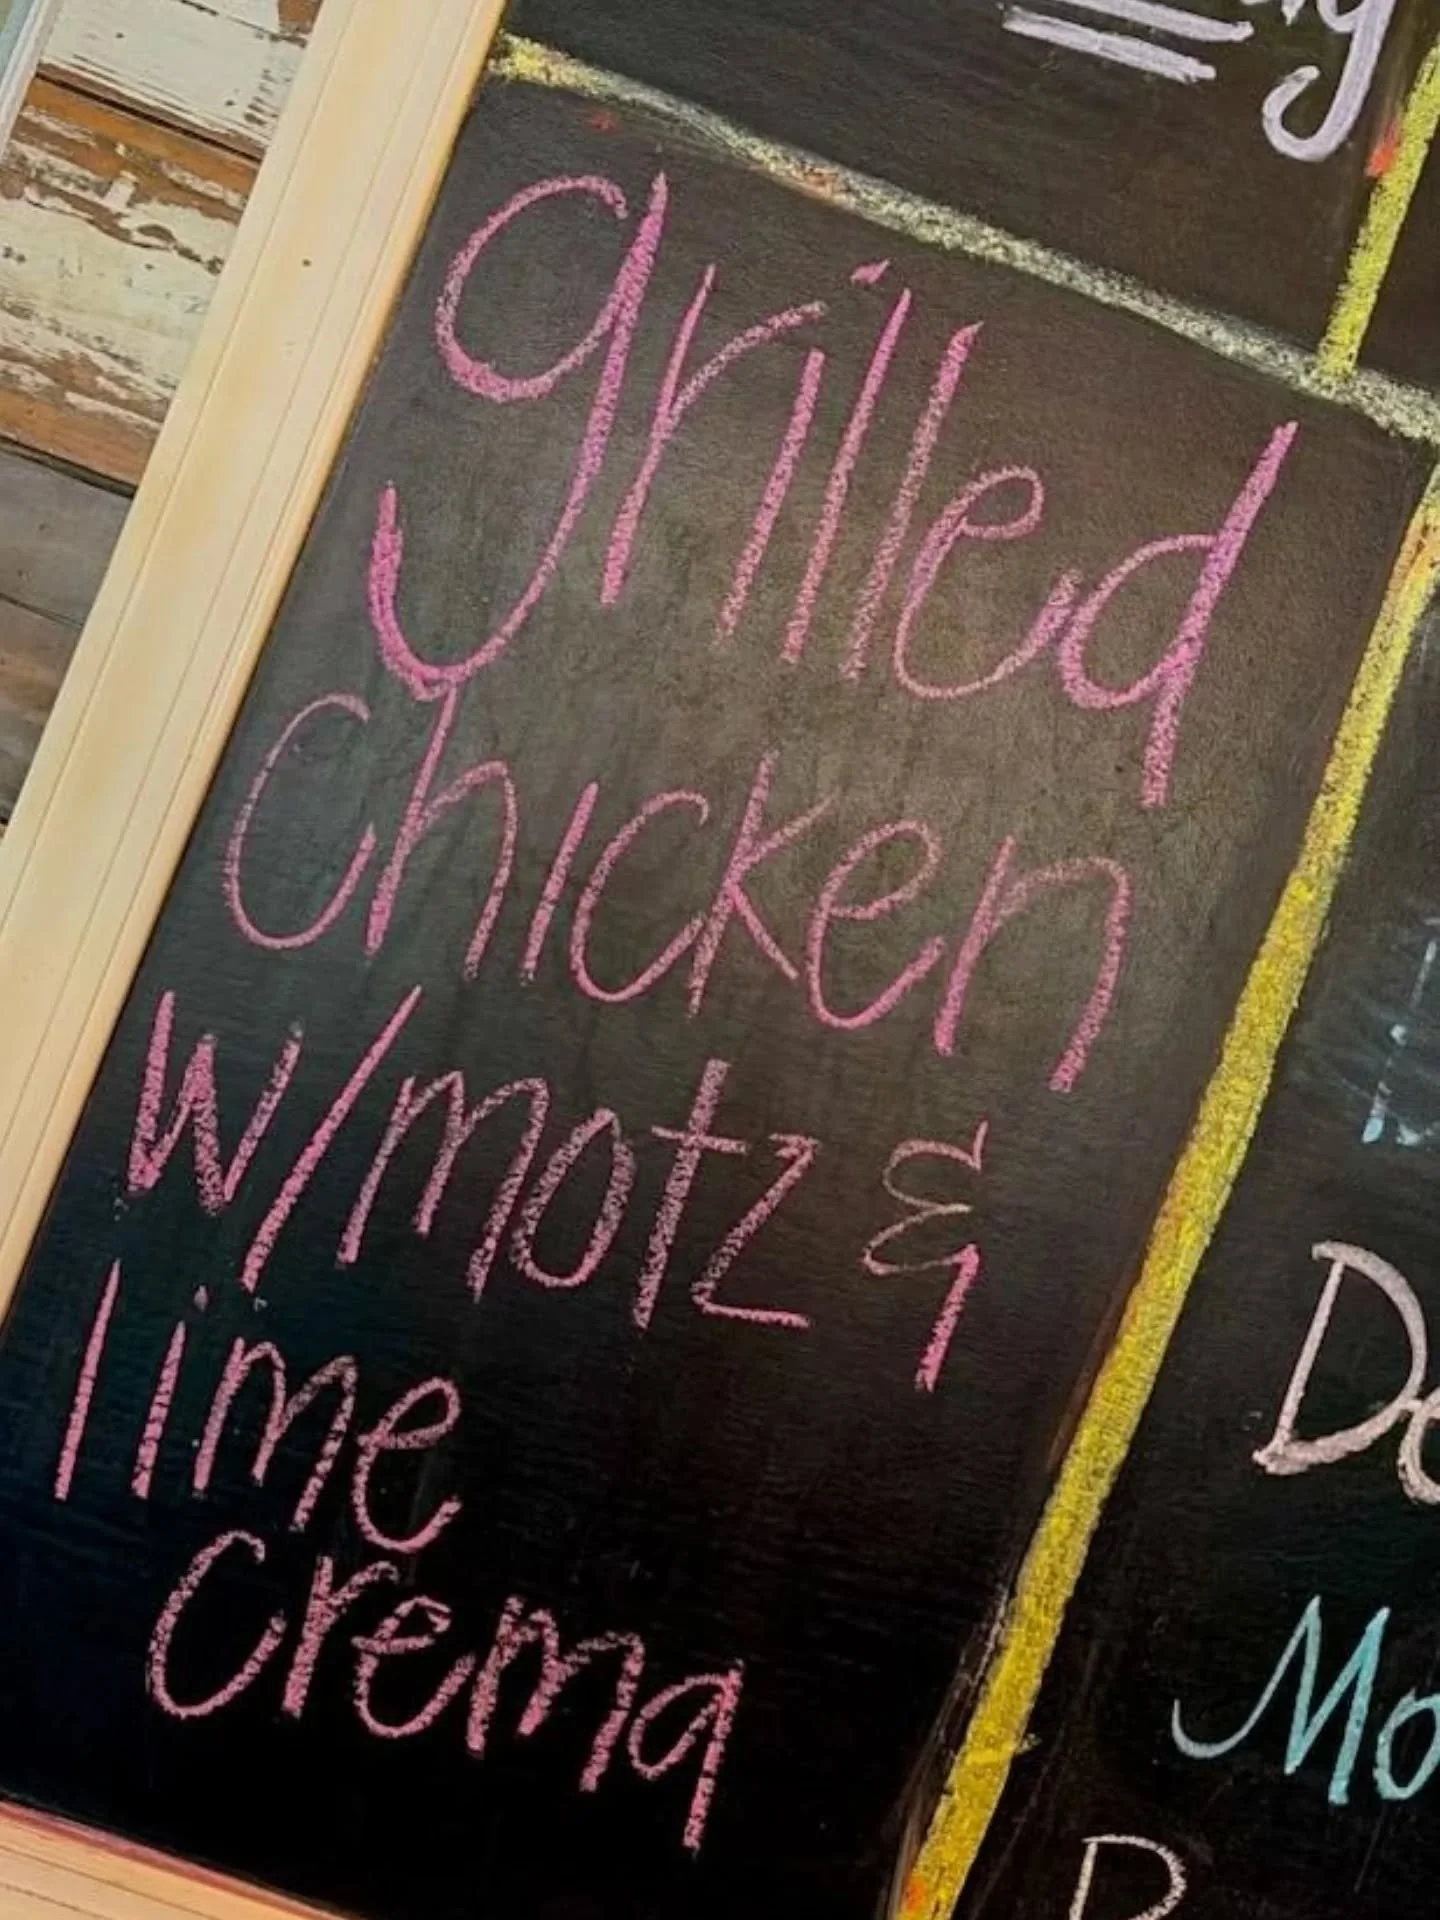 grilled
chicken
w/motz &
lime
crema